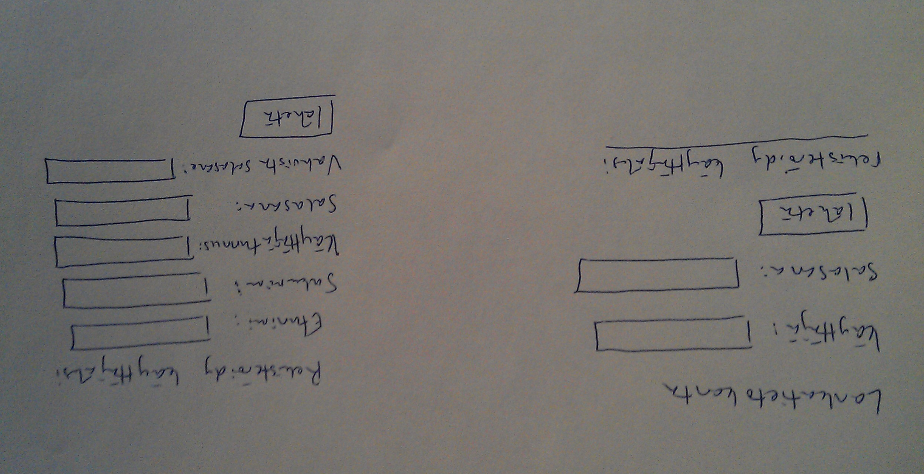 Lankatietokanta
Käyttäjä:
Salasana:
lähetä
rekisteröidy käyttäjäksi
Rekisteröidy käyttäjäksi
Etunimi:
Sukunimi:
Käyttäjätunnus:
Salasana:
Vahvista salasana:
lähetä